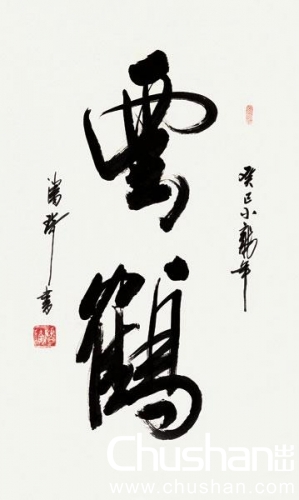 癸巳小龍年
雲鶴
書
Chushan
www.chushan.com